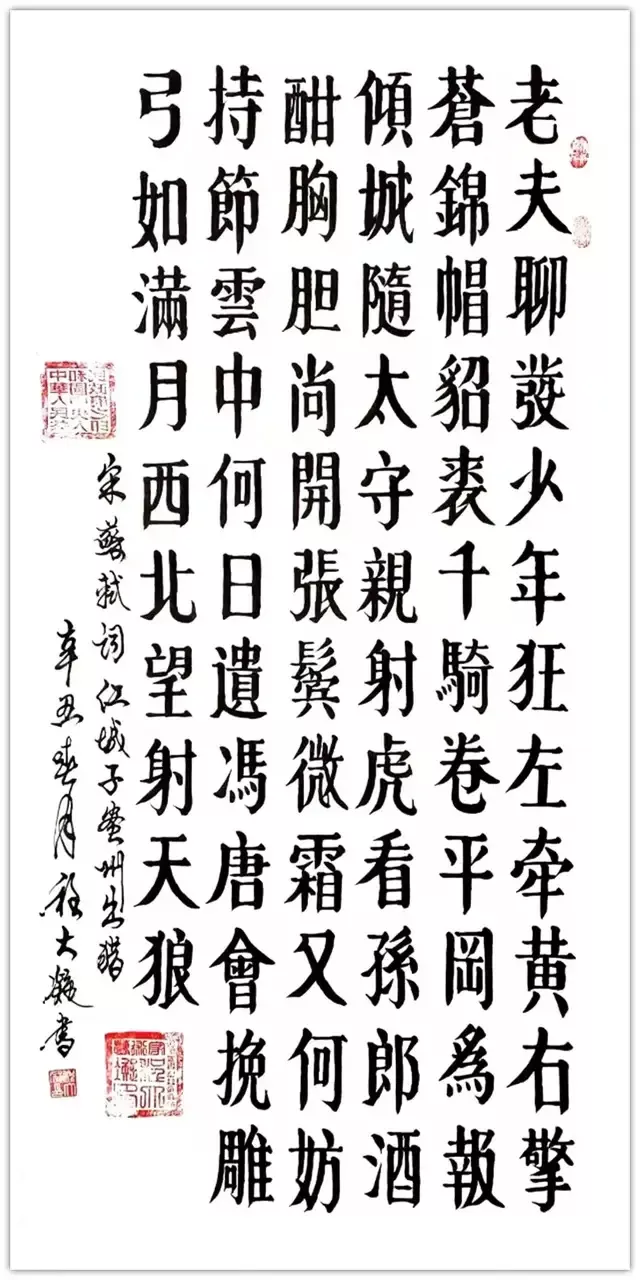 老夫聊發少年狂左牽黃右擎
蒼錦帽貂裘千騎卷平岡為報
傾城隨太守親射虎看孫郎酒
酣胸胆尚開張鬢微霜又何妨
持節雲中何日遺馮唐會挽雕
弓如滿月西北望射天狼
宋蘇軾詞江城子密州出猎
辛丑春月程大凝書